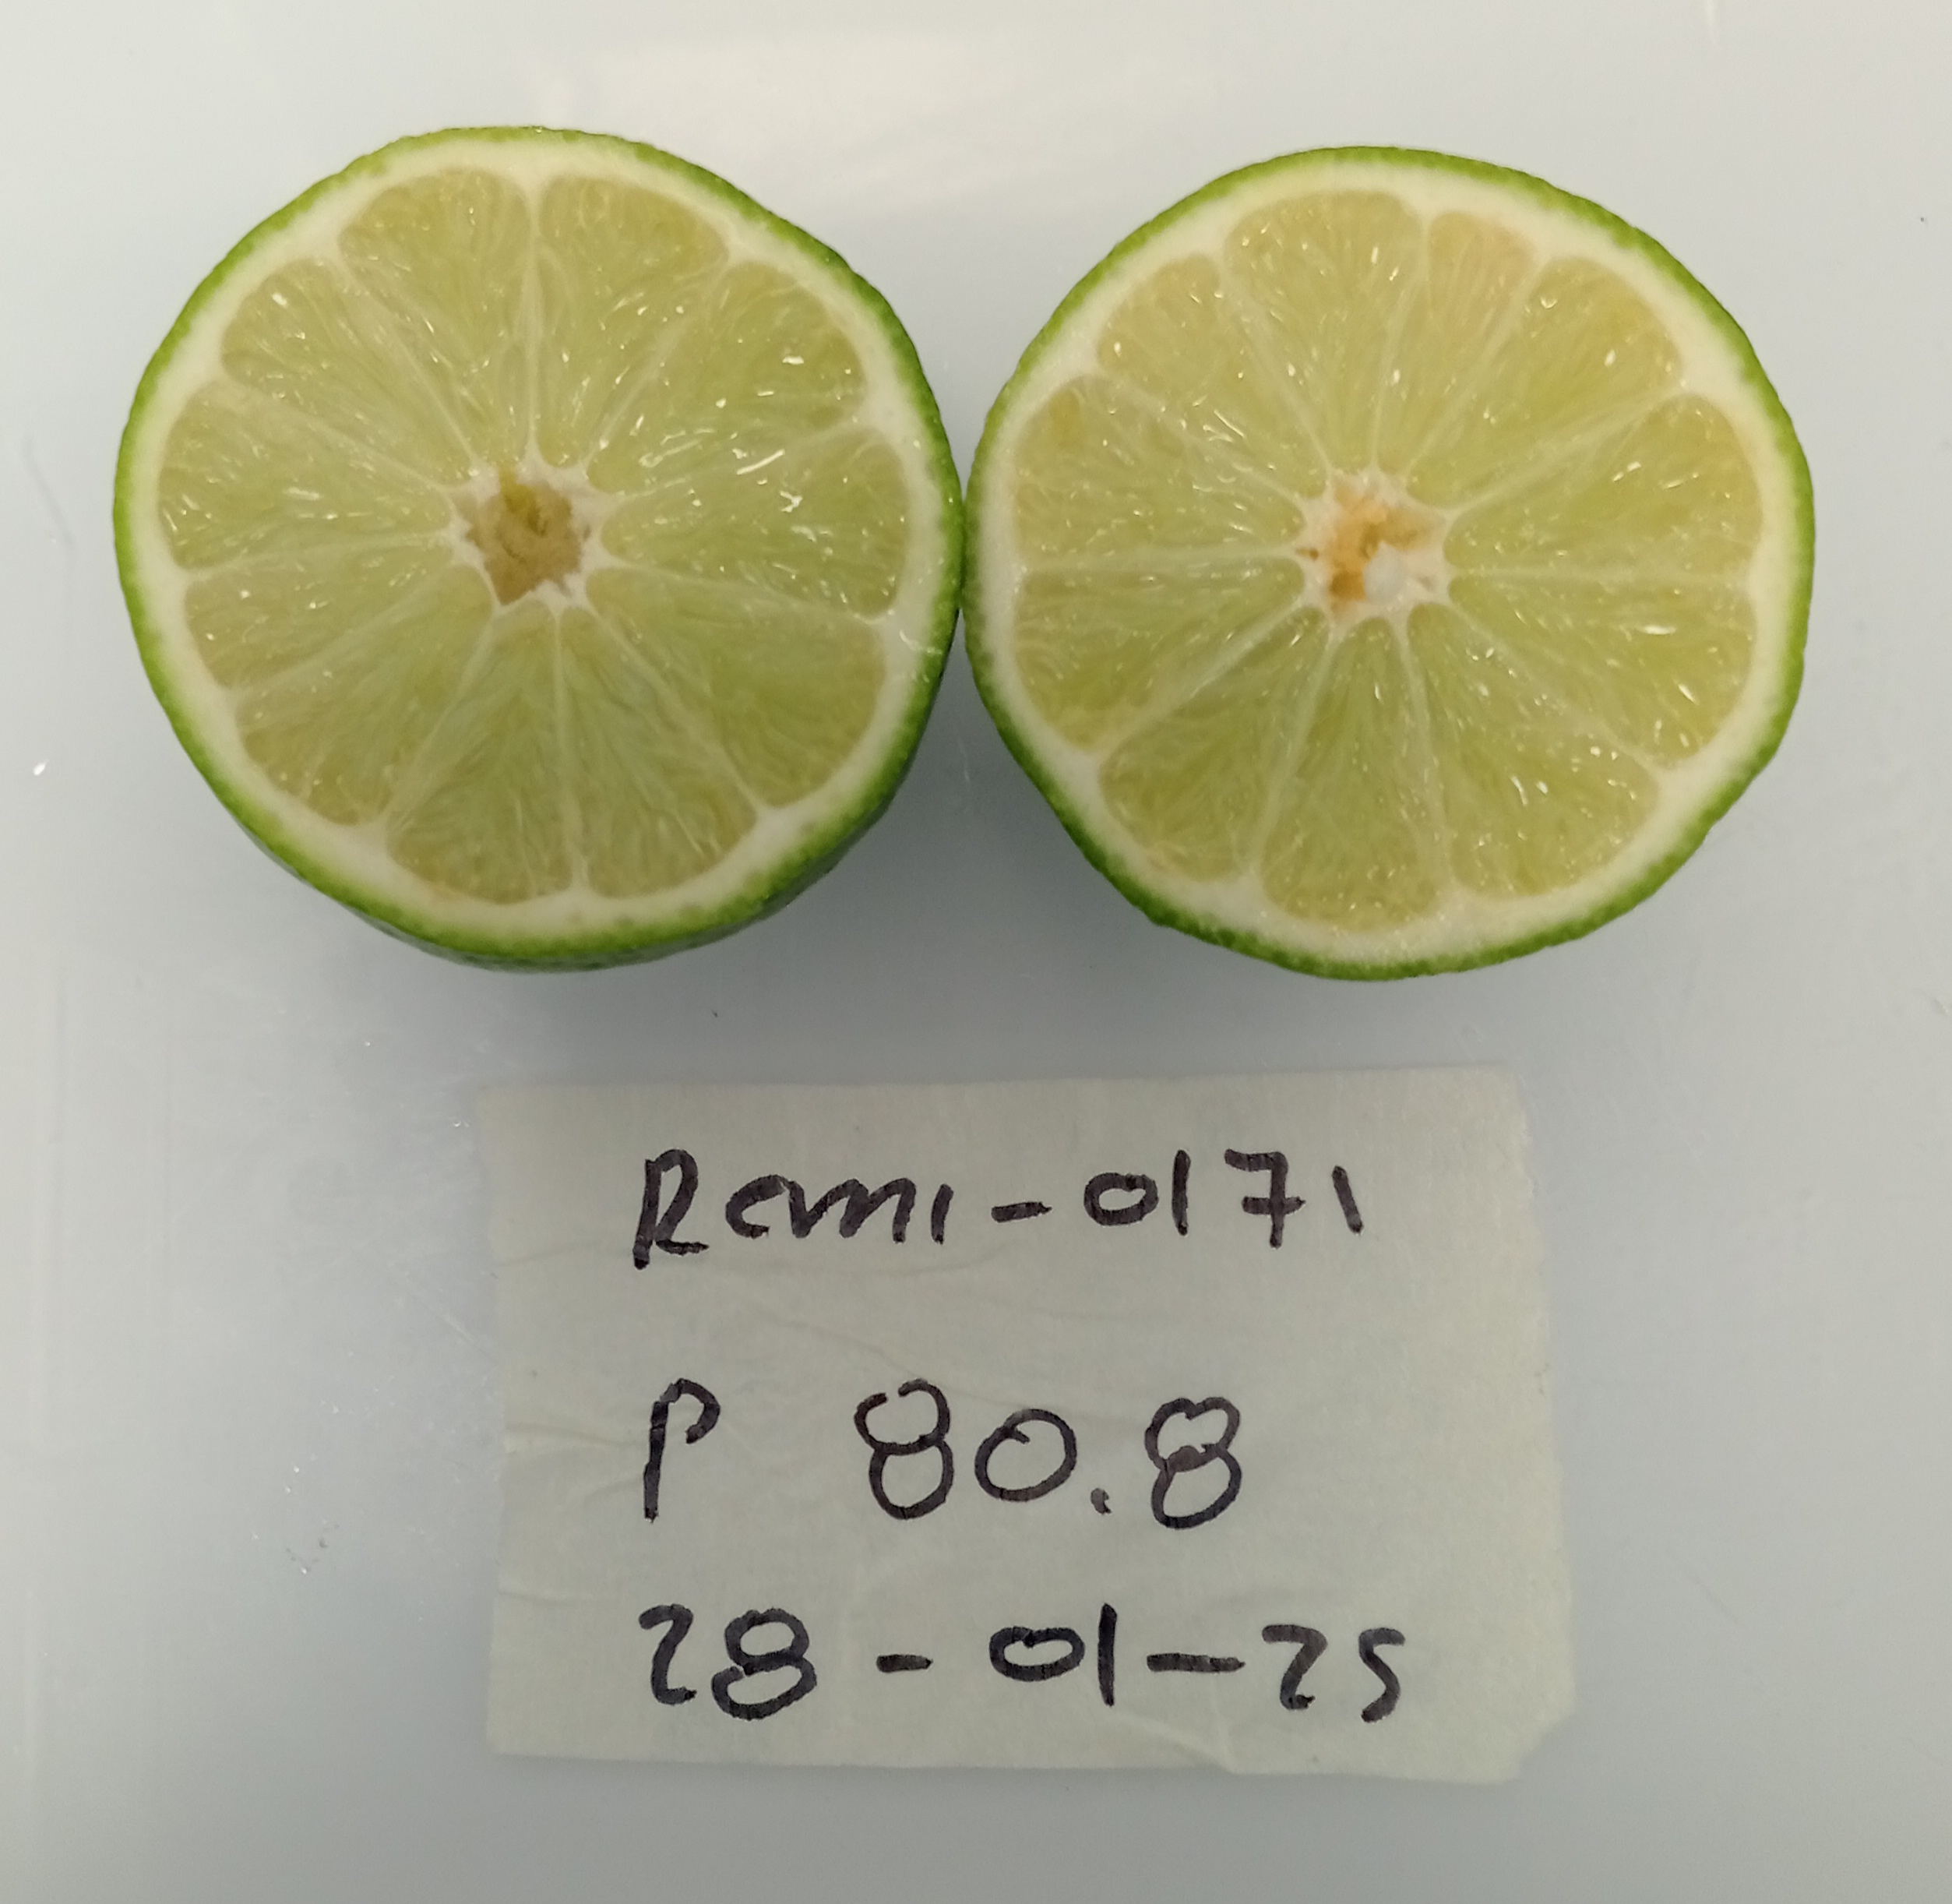 Rcmi-0171
P 80.8
28-01-25